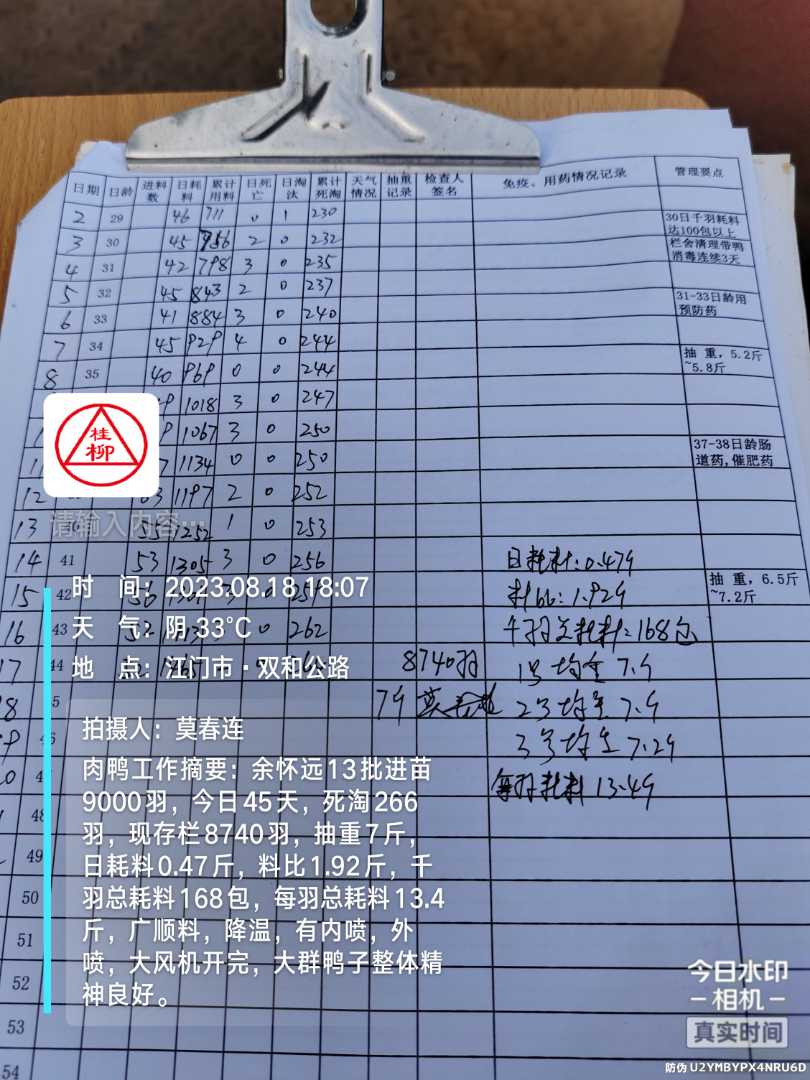 日期 日龄 进料数 日耗料 累计用料 日死亡 日淘汰 累计死淘 天气情况 抽重记录 检查人签名 免疫、用药情况记录 管理要点
2 29 46 711 0 1 230
30日千羽耗料达100包以上
3 30 45 756 2 0 232
栏舍清理带鸭消毒连续3天
4 31 42 798 3 0 235
5 32 45 843 2 0 237
31-33日龄用预防药
6 33 41 884 3 0 240
7 34 45 929 4 0 244
抽重,5.2斤~5.8斤
8 35 40 969 0 0 244
1018 3 0 247
1067 3 0 250
37-38日龄肠道药,催肥药
1134 0 0 250
12 1197 2 0 252
13 55 1252 1 0 253
14 41 53 1305 3 0 256
日耗料:0.47斤
15 42
料比:1.92斤
抽重,6.5斤~7.2斤
16 43 0 262
千羽总耗料:168包
17 44
8740羽 1号均重 7斤
7斤 莫春连 2号均重 7斤
3号均重 7.2斤
每羽耗料 13.4斤
48
49
50
51
52
53
54
桂柳
请输入内容...
时 间:2023.08.18 18:07
天 气:阴 33℃
地 点:江门市·双和公路
拍摄人:莫春连
肉鸭工作摘要:余怀远13批进苗
9000羽,今日45天,死淘266
羽,现存栏8740羽,抽重7斤,
日耗料0.47斤,料比1.92斤,千
羽总耗料168包,每羽总耗料13.4
斤,广顺料,降温,有内喷,外
喷,大风机开完,大群鸭子整体精
神良好。
今日水印
相机
真实时间
防伪 U2YMBYPX4NRU6D